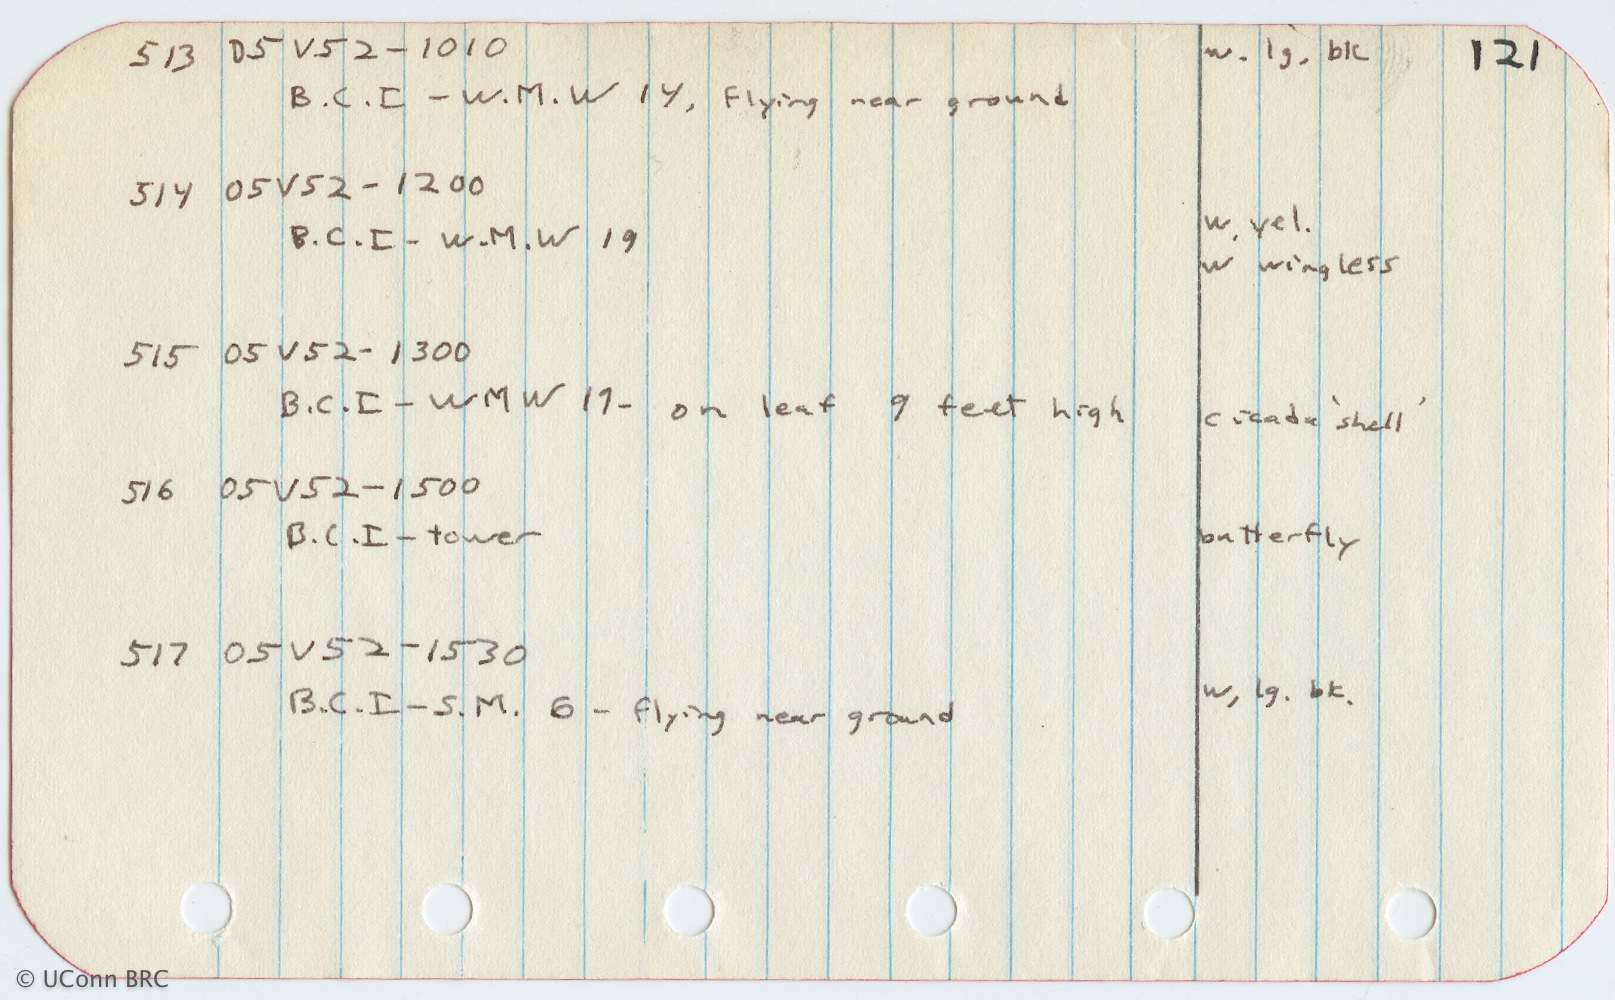 121
513 05V52-1010 w. lg. bk
B.C.I - W.M.W 14, flying near ground
514 05V52-1200
w. yel.
B.C.I - W.M.W 19
w wingless
515 05V52-1300
B.C.I - WMW 19- on leaf 9 feet high cicada 'shell'
516 05V52-1500
B.C.I - tower butterfly
517 05V52-1530
B.C.I - S.M. 6 - flying near ground w, lg. bk.
© UConn BRC